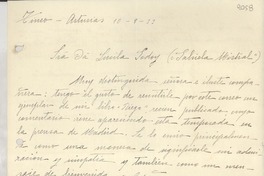 4058
Tineo - Asturias 18-9-33
Sra Dª Lucila Godoy ("Gabriela Mistral")
Muy distinguida señora e ilustre compa
ñera: tengo el gusto de remitirle por este correo un
ejemplar de mi libro
publicado
comentario viene apareciendo esta temporada en
la prensa de Madrid. Se lo envio principalmen-
te como una manera de significarle mi admi-
racion y simpatia y tambien como un men
saje de bienvenida